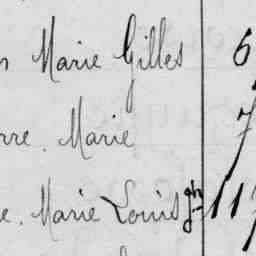 Marie Gilles 6
rre. Marie 7
e. Marie Louis 117